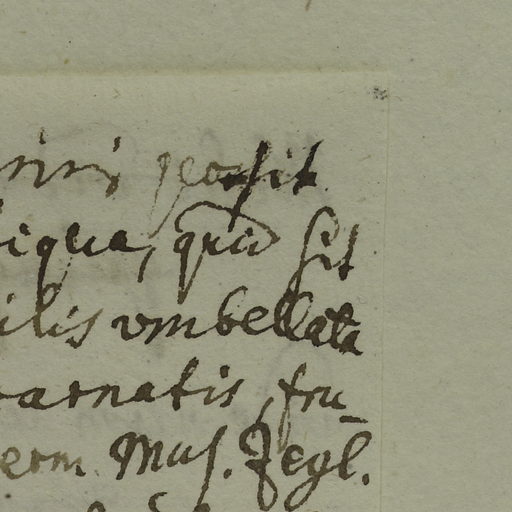 possit
iqua, quid sit
ilis vmbellata
arnatis, fru-
erm Mus. Zeyl.